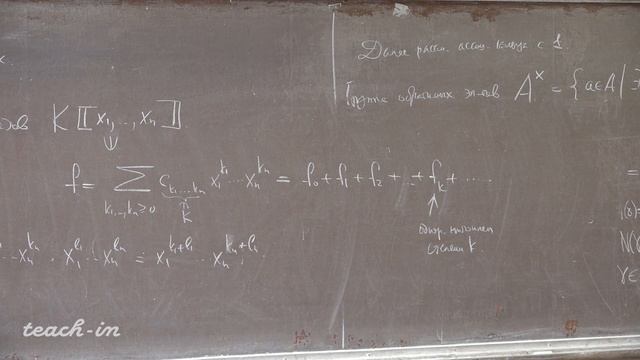 K[[x₁,...,xₙ]]
f = ∑ c_{k₁...kₙ} x₁^{k₁}....xₙ^{kₙ} = f₀ + f₁ + f₂ + ... + f_k + ....
k₁,..,kₙ ≥ 0
K
однор. многочлен
степени k
...xₙ^{kₙ} · x₁^{l₁}...xₙ^{lₙ} = x₁^{k₁+l₁}....xₙ^{kₙ+lₙ}
Далее рассм. ассоц. кольца с 1.
Группа обратимых эл-тов A^× = {a∈A | ∃
=
N(
γ∈
teach-in